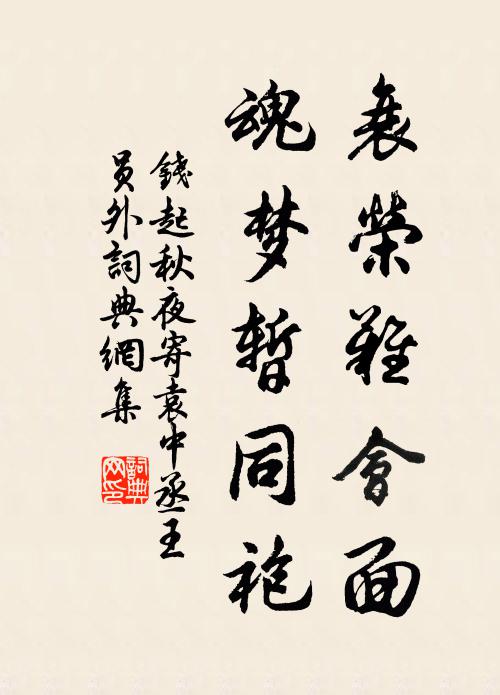 衰榮難會面
魂梦暫同袍
錢起秋夜寄袁中丞王
員外詞典網集
詞典
网印